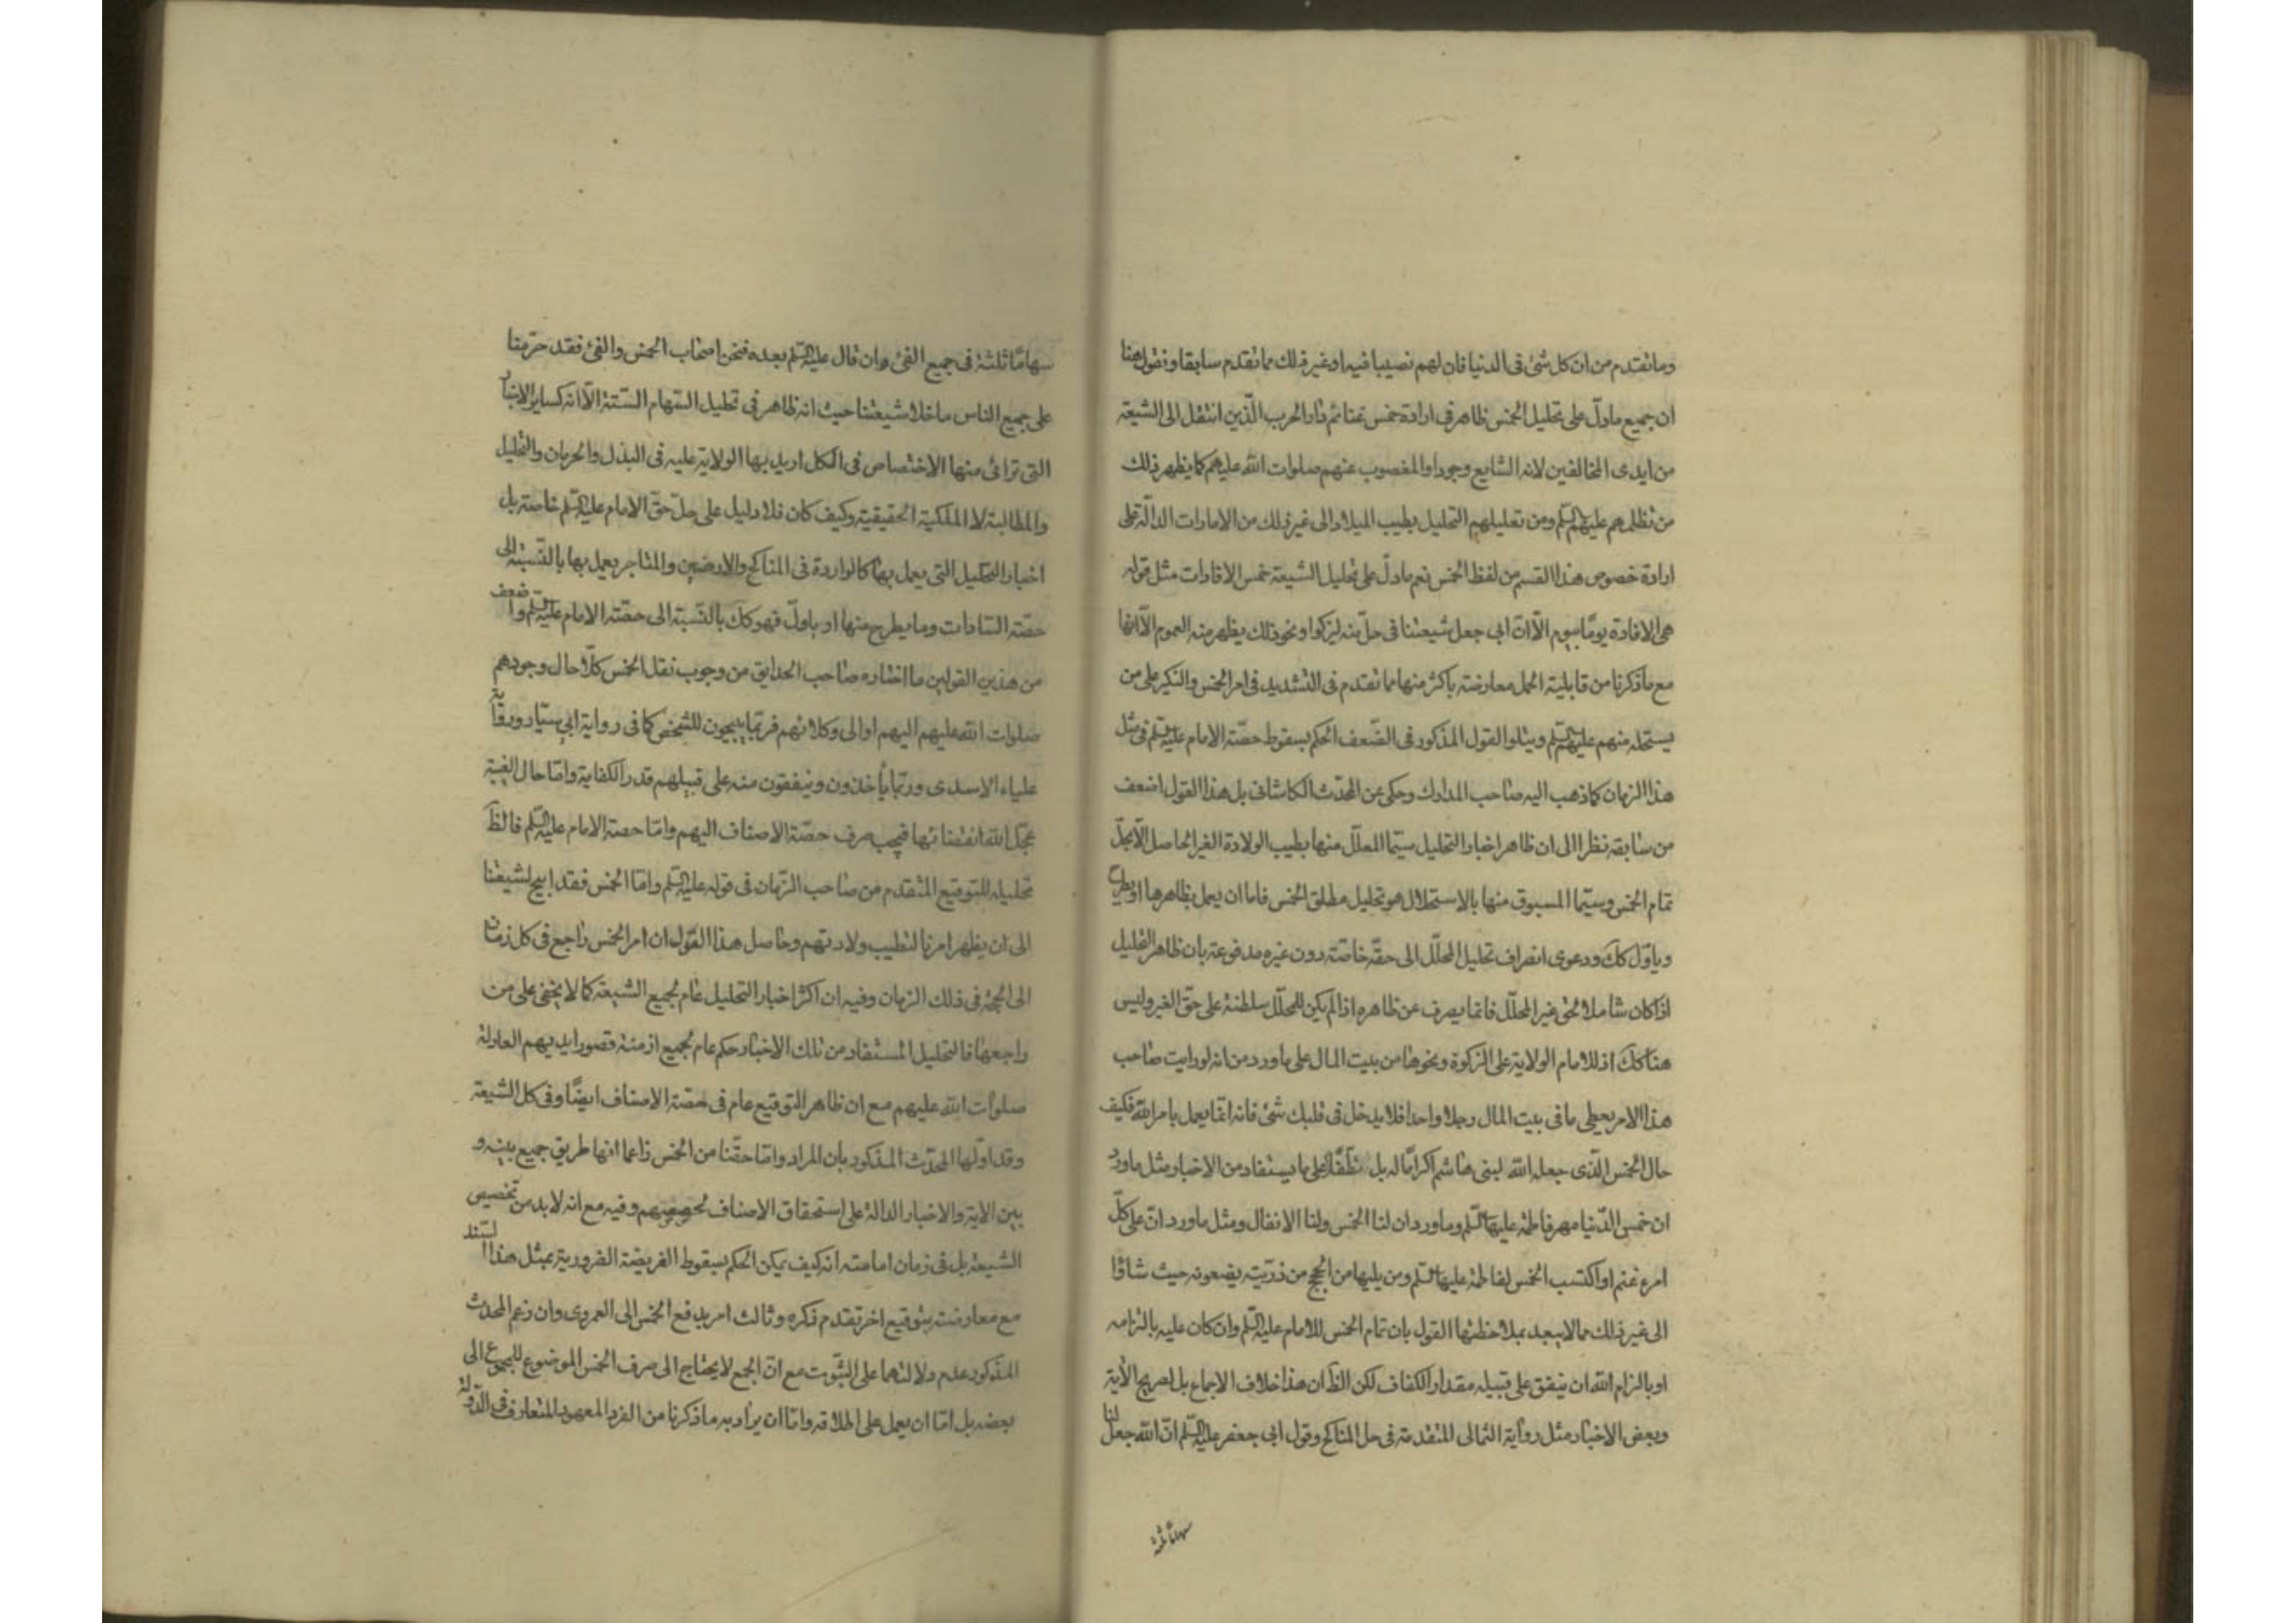 وما تقدم من ان كل شئ فى الدنيا فان لهم نصيبا فيه او غير ذلك مما تقدم سابقا ونقول هنا
ان جميع ما دلّ على تحليل الخمس ظاهر فى ارادة خمس غنائم دار الحرب الّذين انتقل الى الشيعة
من ايدى المخالفين لانه الشايع وجودا والمغصوب عنهم صلوات اللّه عليهم كما يظهر ذلك
من تظلمهم عليهم السّلم ومن تعليلهم التحليل بطيب الميلاد الى غير ذلك من الامارات الدالّة على
ارادة خصوص هذا القسم من لفظ الخمس نعم ما دلّ على تحليل الشيعة خمس الافادات مثل قوله
هى الافادة يومًا بيوم الّا انّ ابى جعل شيعتنا فى حلّ منه ليزكوا ونحو ذلك يظهر منه العموم الّا انها
مع ما ذكرنا من قابلية الحمل معارضة باكثر منها مما تقدم فى التشديد فى امر الخمس والنكير على من
يستحله منهم عليهم السّلم ويتلو القول المذكور فى الضّعف الحكم بسقوط حصّة الامام عليه السّلم فى مثل
هذا الزمان كما ذهب اليه صاحب المدارك وحكى عن المحدّث الكاشانى بل هذا القول اضعف
من سابقه نظرا الى ان ظاهر اخبار التحليل سيّما المعلّل منها بطيب الولادة الغير الحاصل الّا بحلّ
تمام الخمس وسيّما المسبوق منها بالاستحلال هو تحليل مطلق الخمس فاما ان يعمل بظاهرها او يطرح
وياوّل كك ودعوى انصراف تحليل المحلّل الى حقّه خاصّة دون غيره مدفوعة بان ظاهر التحليل
اذا كان شاملا لحق غير المحلّل فانما يصرف عن ظاهره اذا لم يكن للمحلّل سلطنة على حقّ الغير وليس
هنا كك اذ للامام الولاية على الزكوة ونحوها من بيت المال على ما ورد من انه لو رايت صاحب
هذا الامر يعطى ما فى بيت المال رجلا واحدا فلا يدخل فى قلبك شئ فانه انما يعمل بامر اللّه فكيف
حال الخمس الّذى جعله اللّه لبنى هاشم اكرامًا له بل على ما يستفاد من الاخبار مثل ما ورد
ان خمس الدّنيا مهر فاطمة عليها السّلم وما ورد ان لنا الخمس ولنا الانفال ومثل ما ورد انّ على كلّ
امرء غنم او اكتسب الخمس لفاطمة عليها السّلم ومن يليها من الحجج من ذرّيته يضعونه حيث شاؤا
الى غير ذلك مما لا يبعد بملاحظتها القول بان تمام الخمس للامام عليه السّلم وان كان عليه بالتزامه
او بالزام اللّه ان ينفق على قبيله مقدار الكفاف لكن الظ ان هذا خلاف الاجماع بل صريح الآية
وبعض الاخبار مثل رواية الثمالى المتقدمة فى حل المناكح وقول ابى جعفر عليه السّلم انّ اللّه جعل لنا
سهامًا ثلثة
سهامًا ثلثة فى جميع الفئ وان قال عليه السّلم بعده فنحن اصحاب الخمس والفئ فقد حرّمنا
على جميع الناس ما خلا شيعتنا حيث انه ظاهر فى تحليل السّهام الستة الّا انه كساير الاخبار
التى ترائى منها الاختصاص فى الكل اريد بها الولاية عليه فى البذل والحرمان والتحليل
والمطالبة لا الملكية الحقيقية وكيف كان فلا دليل على حلّ حقّ الامام عليه السّلم خاصة بل
اخبار التحليل التى يعمل بها كالواردة فى المناكح والارضين والمتاجر يعمل بها بالنّسبة الى
حصّة السّادات وما يطرح منها او ياوّل فهو كك بالنّسبة الى حصّة الامام عليه السّلم واضعف
من هذين القولين ما اختاره صاحب الحدايق من وجوب نقل الخمس كلّا حال وجودهم
صلوات اللّه عليهم اليهم او الى وكلائهم فربّما يبيحون للشّخص كما فى رواية ابى سيّار ورواية
علباء الاسدى وربّما ياخذون وينفقون منه على قبيلهم قدر الكفاية وامّا حال الغيبة
عجّل اللّه انقضائها فيجب صرف حصّة الاصناف اليهم وامّا حصة الامام عليه السّلم فالظ
تحليله للتوقيع المتقدم من صاحب الزّمان فى قوله عليه السّلم وامّا الخمس فقد ابيح لشيعتنا
الى ان يظهر امرنا لتطيب ولادتهم وحاصل هذا القول ان امر الخمس راجع فى كل زمان
الى الحجّة فى ذلك الزمان وفيه ان اكثر اخبار التحليل عام لجميع الشيعة كما لا يخفى على من
راجعها فالتحليل المستفاد من تلك الاخبار حكم عام لجميع ازمنة قصور ايديهم العادلة
صلوات اللّه عليهم مع ان ظاهر التوقيع عام فى حصّة الاصناف ايضًا وفى كل الشيعة
وقد اوّلها المحدّث المذكور بان المراد وامّا حقّنا من الخمس زاعما انها طريق جميع بينه و
بين الاية والاخبار الدالة على استحقاق الاصناف لحصّتهم وفيه مع انه لا بد من تخصيص
الشيعة بل فى زمان امامته انه كيف يمكن الحكم بسقوط الفريضة الضرورية بمثل هذا السّند
مع معارضته بتوقيع اخر تقدم ذكره وثالث امر بدفع الخمس الى العمروى وان زعم المحدث
المذكور عدم دلالتهما على الثّبوت مع انّ الجمع لا يحتاج الى صرف الخمس الموضوع للمجموع الى
بعضه بل امّا ان يعمل على اطلاقه وامّا ان يراد به ما ذكرنا من الفرد المعهود المتعارف فى الدّولة